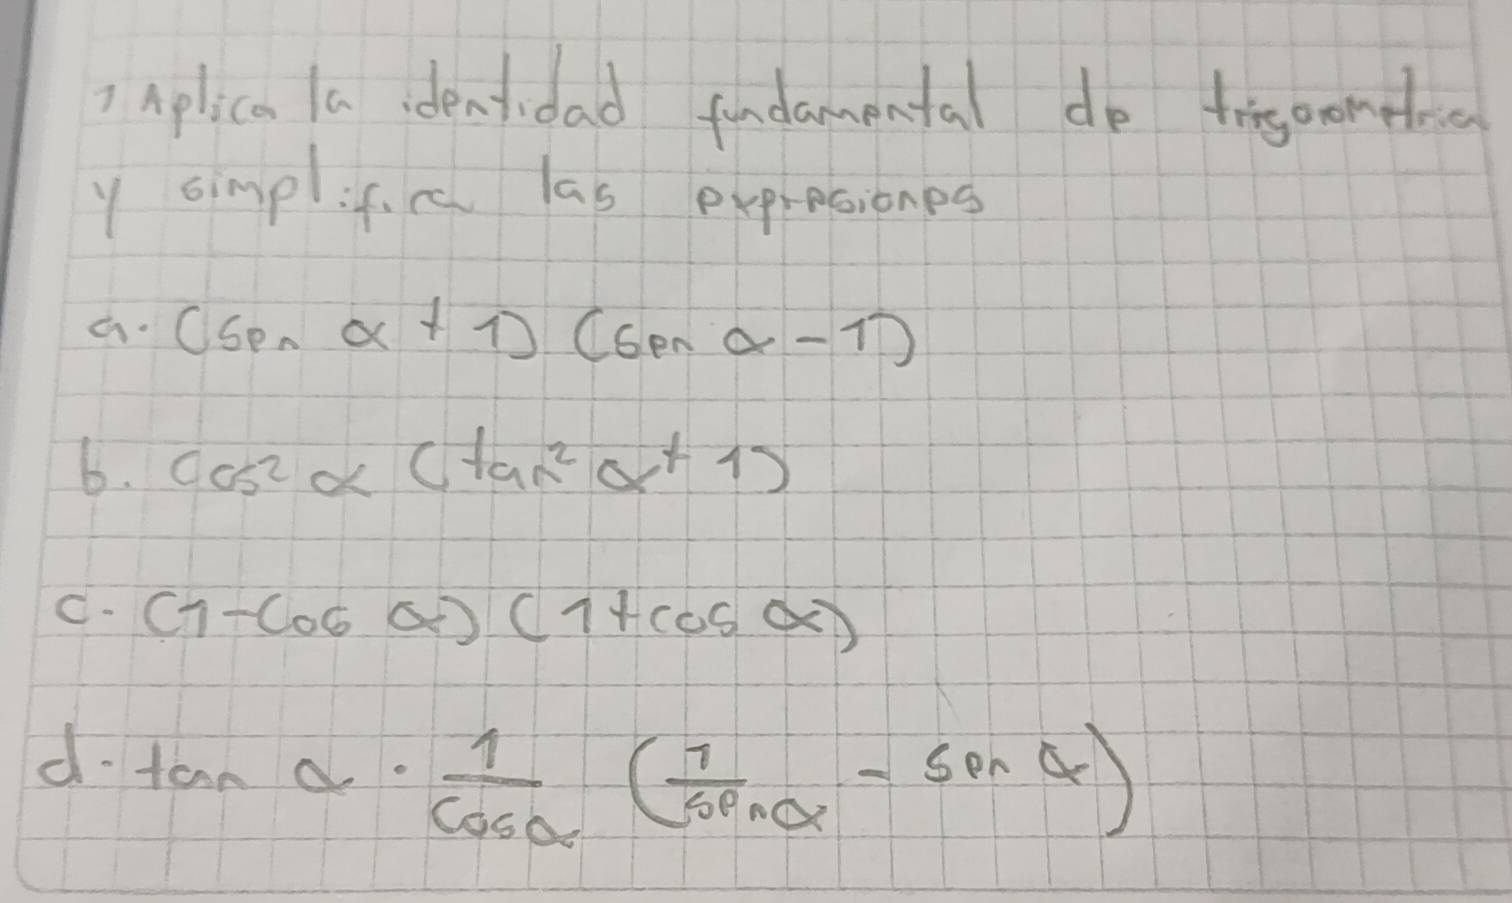 1 Aplica la identidad fundamental de trigonometria
y simplifica las expresiones
a. (sen α + 1) (sen α - 1)
b. cos² α (tan² α + 1)
c. (1 - cos α) (1 + cos α)
d. tan α · 1/cos α (1/sen α - sen α)